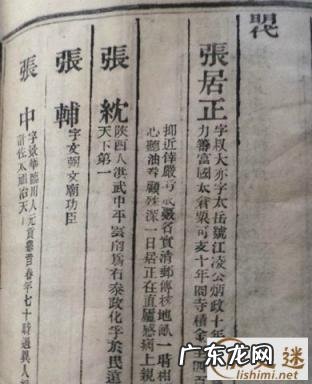 明代
張居正
字叔大亦字太岳號江凌公炳政十年
力籌富國太倉粟可支十年冏寺積金
抑近倖嚴考成覈名實清郵傳核地畝一
心聽油眷顧殊深一日居正在直廬感病上親
張紞
陝西人洪武中平雲南爲右參政化孚於民
天下第一
張輔
字文弼文廟功臣
張中
字景華臨川人元
年七十時遇異人
廣东龙网
迷
lishimi.net